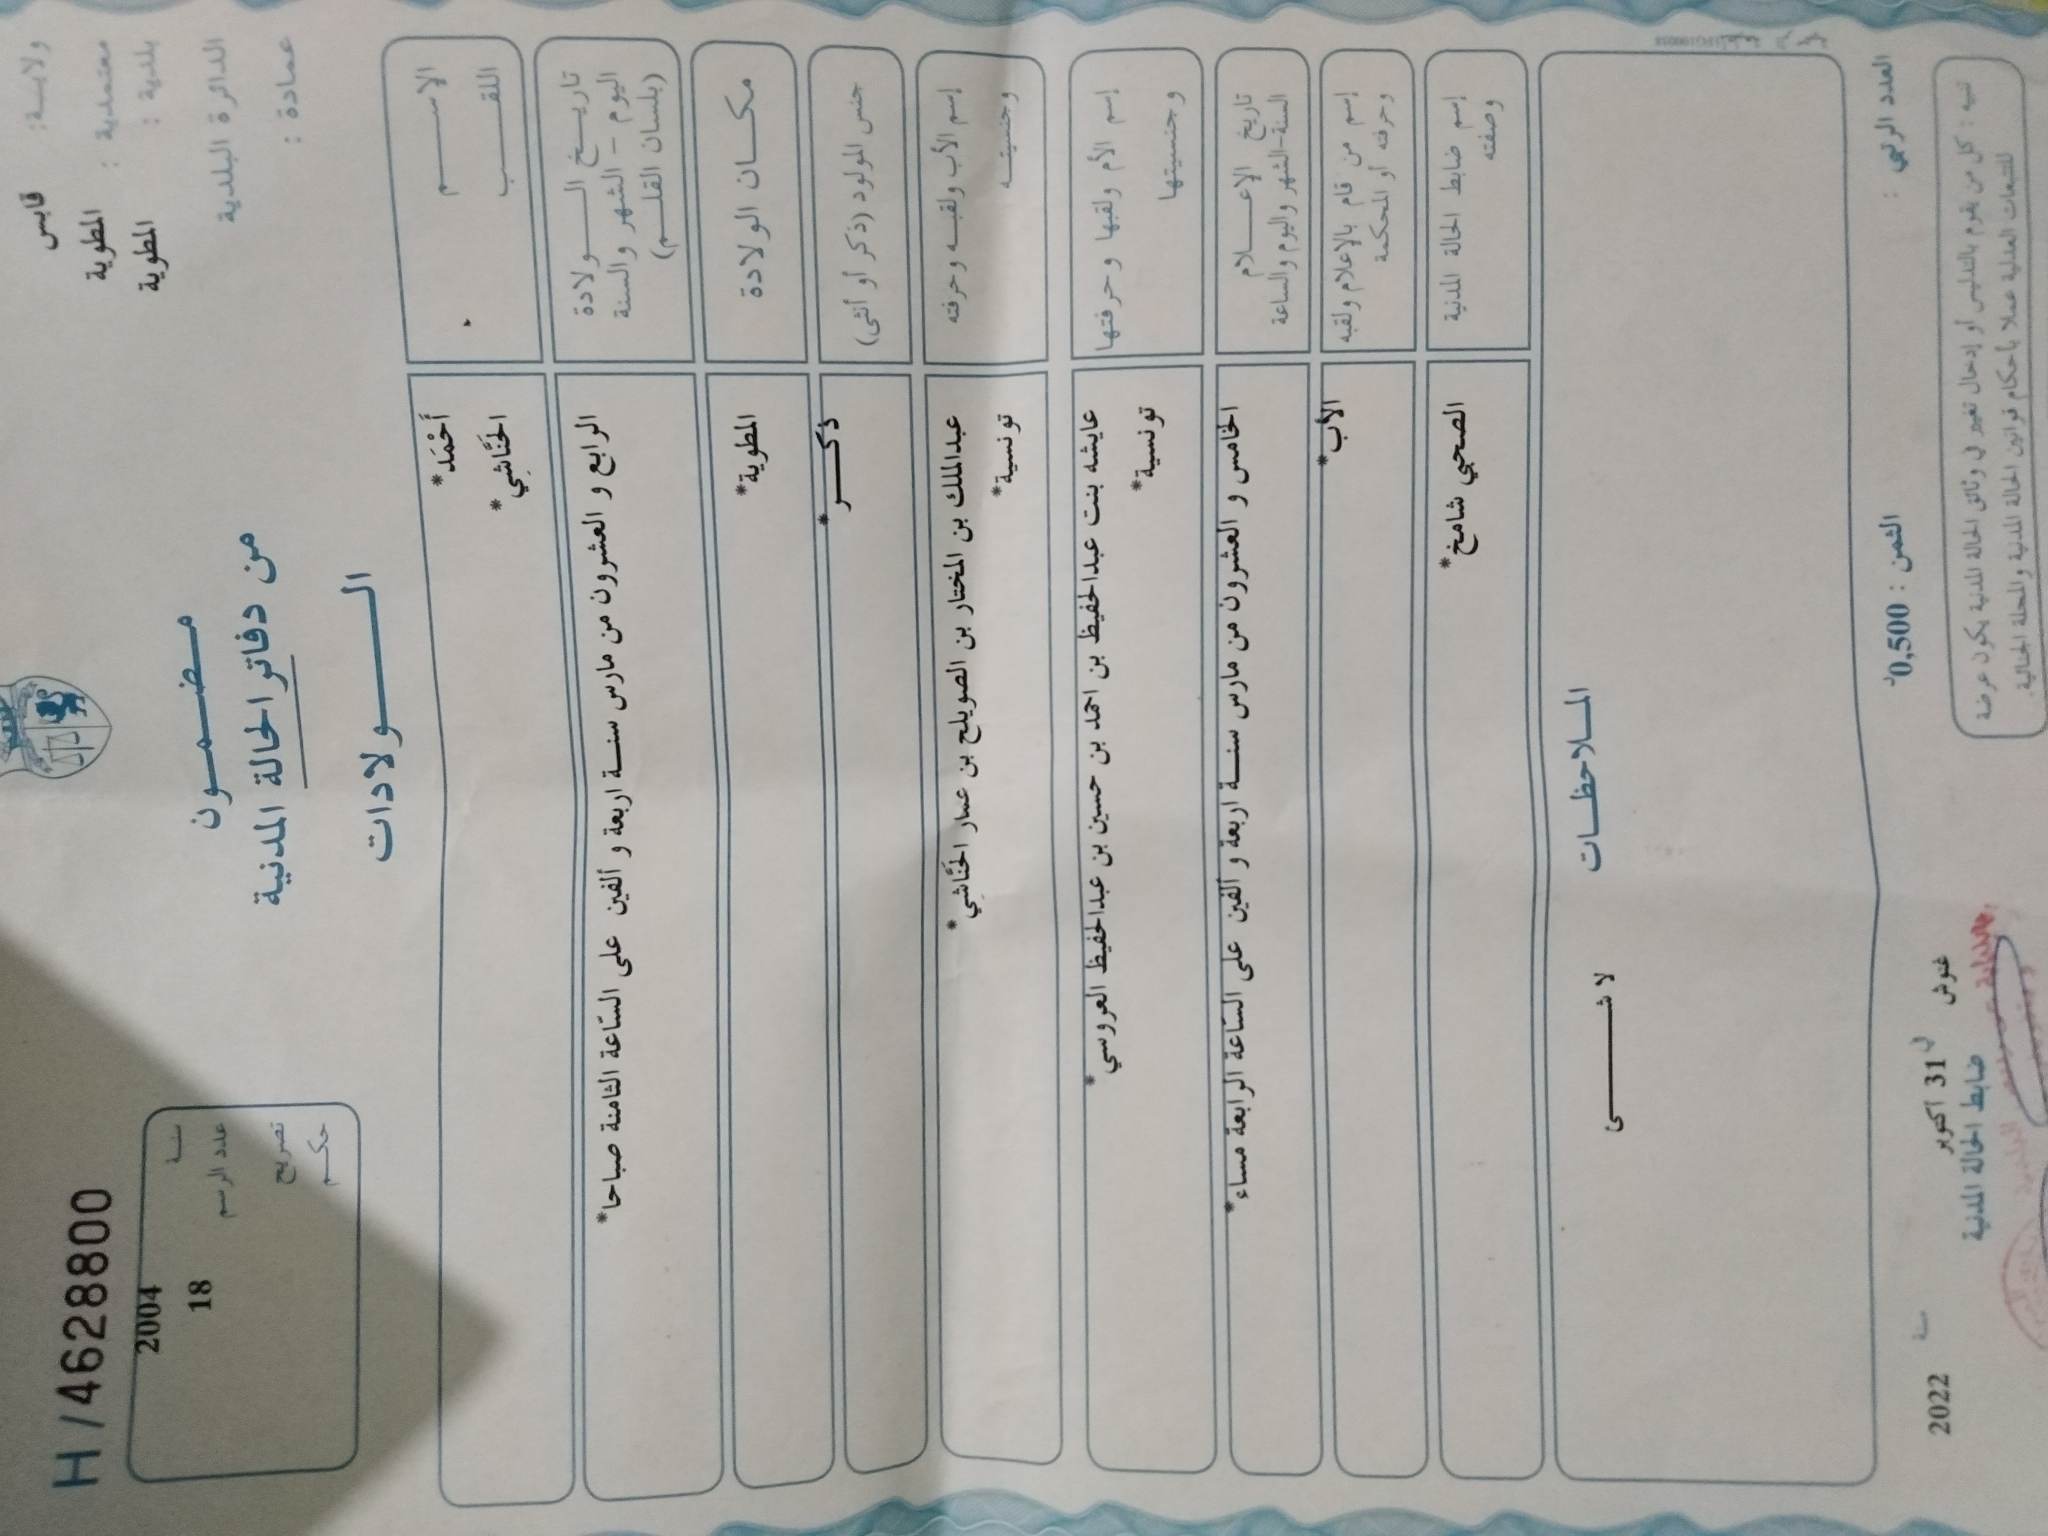 H / 4628800
ولايـــة: قابس
معتمدية : المطوية
بلدية : المطوية
الدائرة البلدية
عمادة :
سنـة 2004
عدد الرسم 18
تصريح
حكـم
مـضـمــون
من دفاتر الحالة المدنية
الـــــولادات
الاســـــم
اللقـــــب
أَحْمَد*
الحَنَّاشِي*
تاريــخ الـــــولادة
اليوم - الشهر والسنة
(بلسان القلـــم)
الرابع و العشرون من مارس سنـــة اربعة و ألفين على السّاعة الثامنة صباحا*
مكــان الولادة
المطوية*
جنس المولود (ذكر أو أنثى)
ذكـــــر*
إسم الأب ولقبـــه وحرفته
وجنسيتـــه
عبدالملك بن المختار بن الصويلح بن عمار الحَنَّاشِي*
تونسية*
إسم الأم ولقبها وحرفتها
وجنسيتها
عايشه بنت عبدالحفيظ بن احمد بن حسين بن عبدالحفيظ العروسي*
تونسية*
تاريخ الإعـــــلام
السنة-الشهر واليوم والساعة
الخامس و العشرون من مارس سنـــة اربعة و ألفين على السّاعة الرابعة مساء*
إسم من قام بالإعلام ولقبه
وحرفته أو المحكمة
الأب*
إسم ضابط الحالة المدنية
وصفته
الصحبي شامخ*
المــلاحظــات
لا شـــــــئ
العدد الرتبي :
الثمن : 0,500د
غنوش في 31 أكتوبر سنة 2022
ضابط الحالة المدنية
تنبيه : كل من يقوم بالتدليس أو إدخال تغيير في وثائق الحالة المدنية يكون عرضة
للتتبعات العدلية عملا بأحكام قوانين الحالة المدنية والمجلة الجنائية.